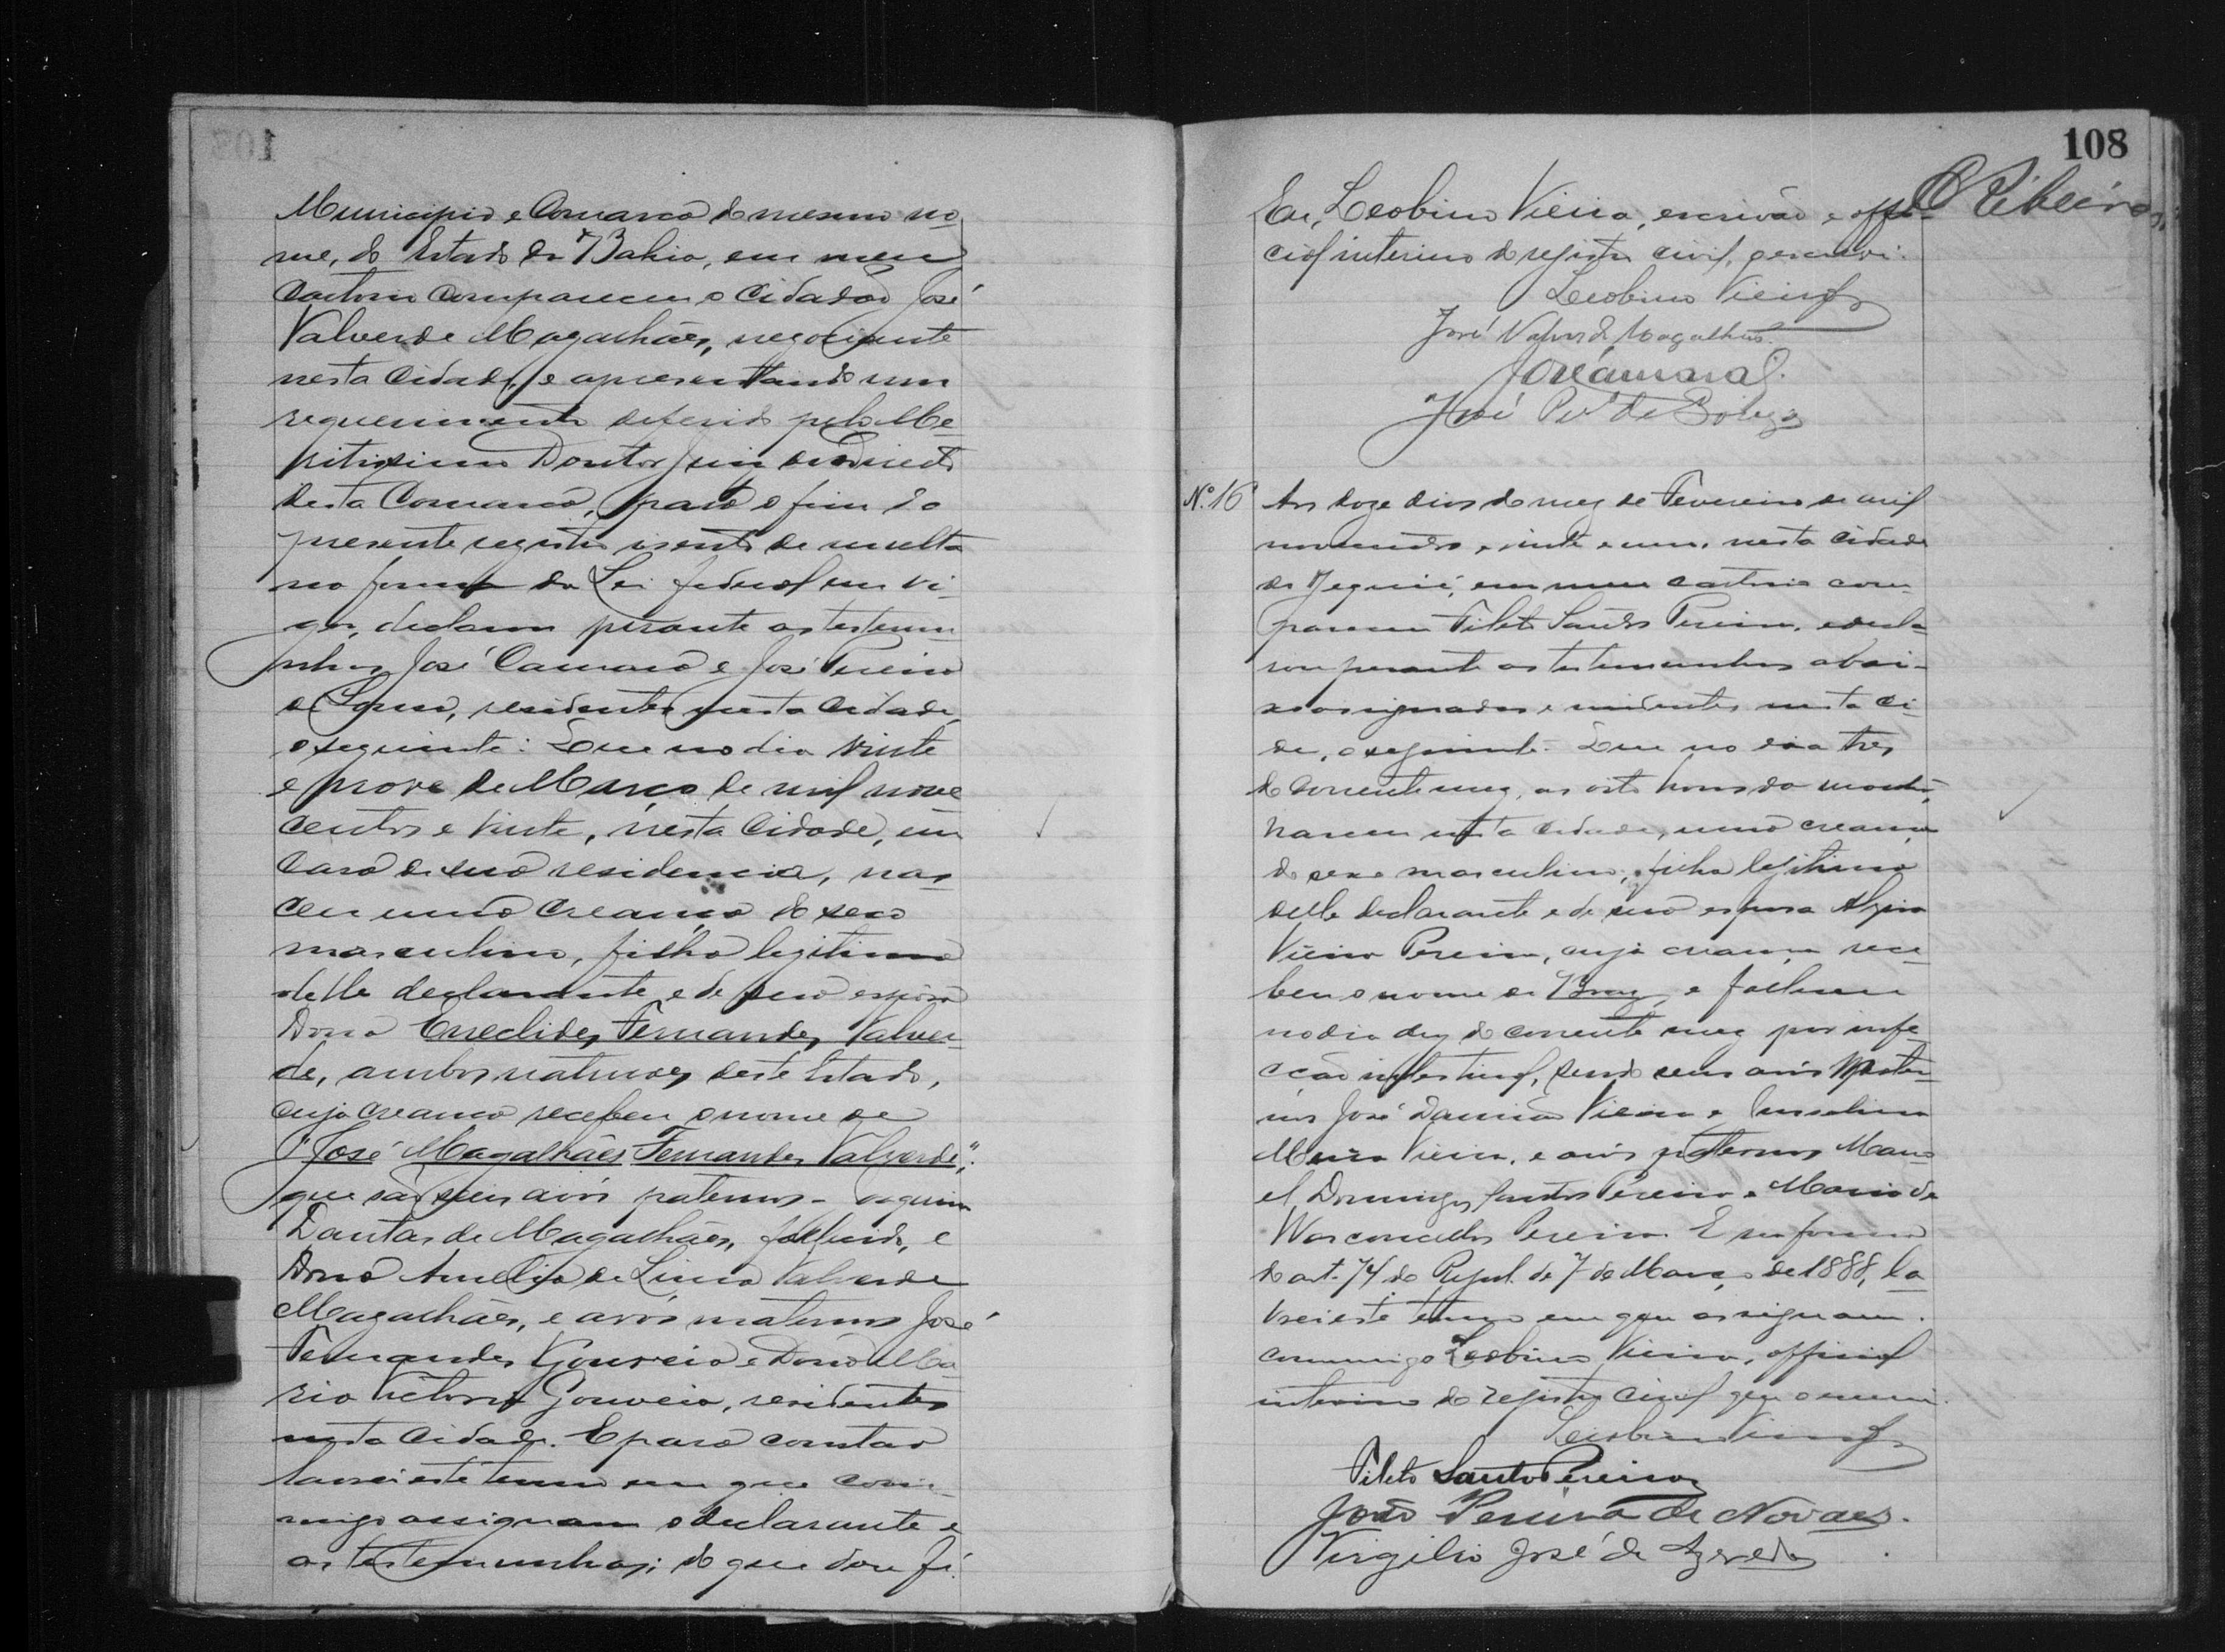 Municipio e Comarca do mesmo no-
me, do Estado da Bahia, em meu
Cartorio compareceu o cidadão José
Valverde Magalhães, negociante
nesta Cidade, e apresentando um
requerimento deferido pelo Me-
ritissimo Doutor Juiz de Direito
desta Comarca, para o fim do
presente registro isento de multa
na forma da Lei federal em vi-
gor, declarou perante as testemu-
nhas José Camara e José Pereira
de Souza, residentes nesta Cidade,
o seguinte: Que no dia vinte
e nove de Março de mil nove
centos e vinte, nesta Cidade, em
casa de sua residencia, nas-
ceu uma creança do sexo
masculino, filho legitimo
delle declarante e de sua esposa
Dona Euclides Fernandes Valver-
de, ambos naturaes deste Estado,
cuja creança recebeu o nome de
"José Magalhães Fernandes Valverde";
que são seus avós paternos
Dantas de Magalhães, fallecido, e
Dona Amelia de Lima Valverde
Magalhães, e avós maternos José
Fernandes Gouveia e Dona Ma-
ria Victoria Gouveia, residentes
nesta Cidade. E para constar
lavrei este termo em que com-
migo assignam o declarante e
as testemunhas; do que dou fé.
108
O Ribeiro
Eu, Leobino Vieira, escrivão e offi-
cial interino do registro civil, o escrevi.
Leobino Vieira
José Valverde Magalhães
José Camara
José Pera de Souza
Nº 16 Aos doze dias do mez de Fevereiro de mil
novecentos e vinte e um, nesta Cidade
de Jequié, em meu cartorio com-
pareceu Fileto Santos Pereira, e decla-
rou perante as testemunhas abai-
xo assignadas e residentes nesta Ci-
de, o seguinte: Que no dia tres
do corrente mez, as oito horas da manhã,
nasceu nesta Cidade, uma creança
do sexo masculino, filho legitimo
delle declarante e de sua esposa
Vieira Pereira, cuja creança rece-
beu o nome de Braz, e falleceu
no dia dez do corrente mez por infe-
cção intestinal, sendo seus avós mater-
nos José Damião Vieira e
Vieira, e avós paternos Mano-
el Domingos Santos Pereira e Maria de
Vasconcellos Pereira. E na forma
do art. 74 do Regul. de 7 de Março de 1888, la-
vrei este termo em que assignam
commigo Leobino Vieira, official
interino do registro civil que o escrevi.
Leobino Vieira
Fileto Santos Pereira
João Pereira de Novaes.
Virgilio José de Azevedo